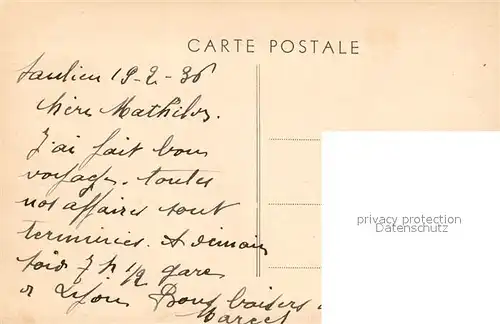 CARTE POSTALE
Saulieu 19-2-36
Chère Mathilde.
J'ai fait bon
voyages. toutes
nos affaires sont
terminées. A demain
soir 7 h 1/2 gare
de Lyon Bons baisers
Marcel
privacy protection
Datenschutz